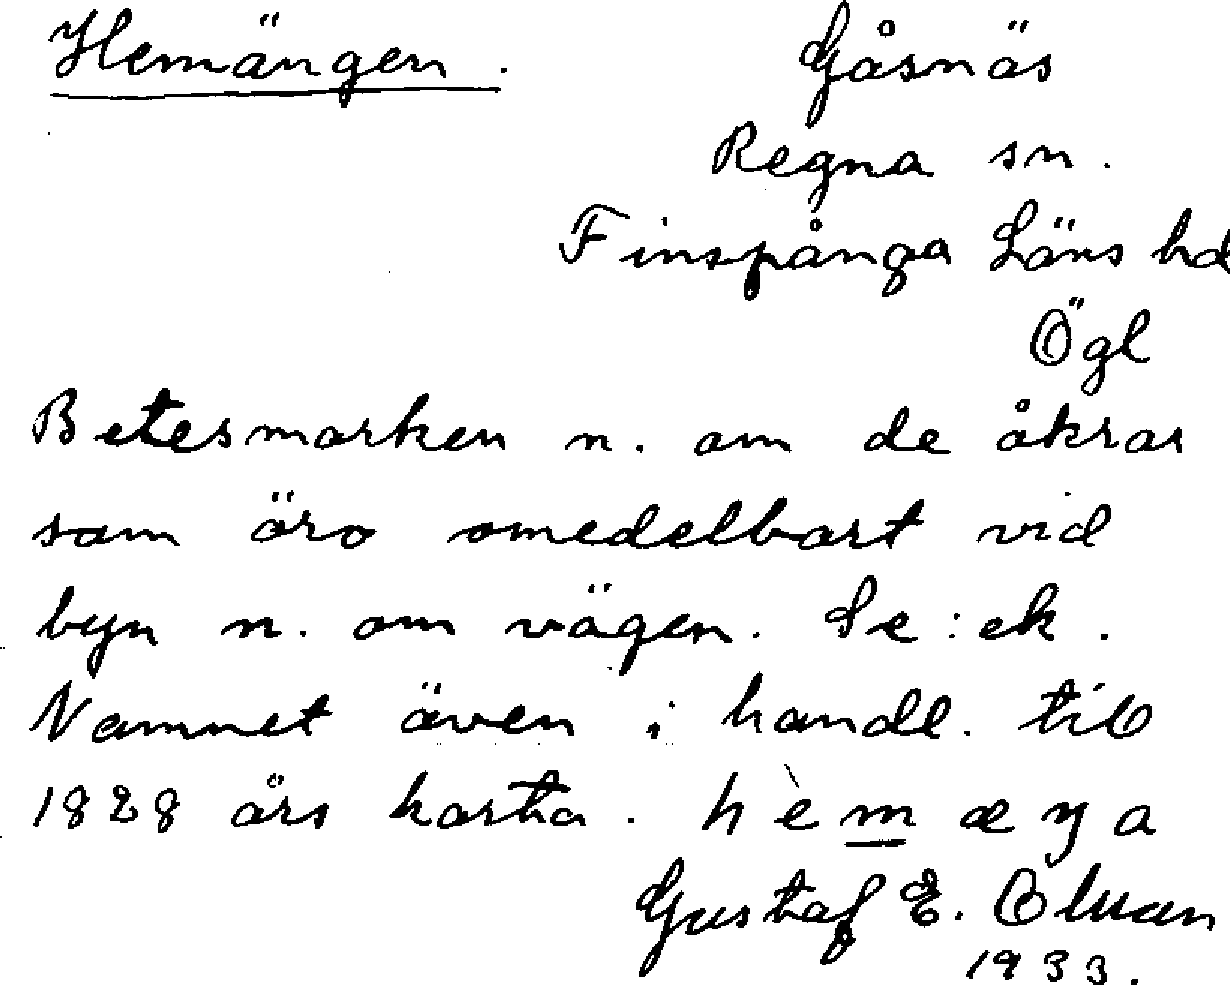 Hemängen. Gåsnäs
Regna sn.
Finspånga Läns hd
Ögl
Betesmarken n. om de åkrar
som äro omedelbart vid
byn n. om vägen. Se: ek.
Namnet även i handl. till
1828 års karta. hèmæŋa
Gustaf E.
1933.